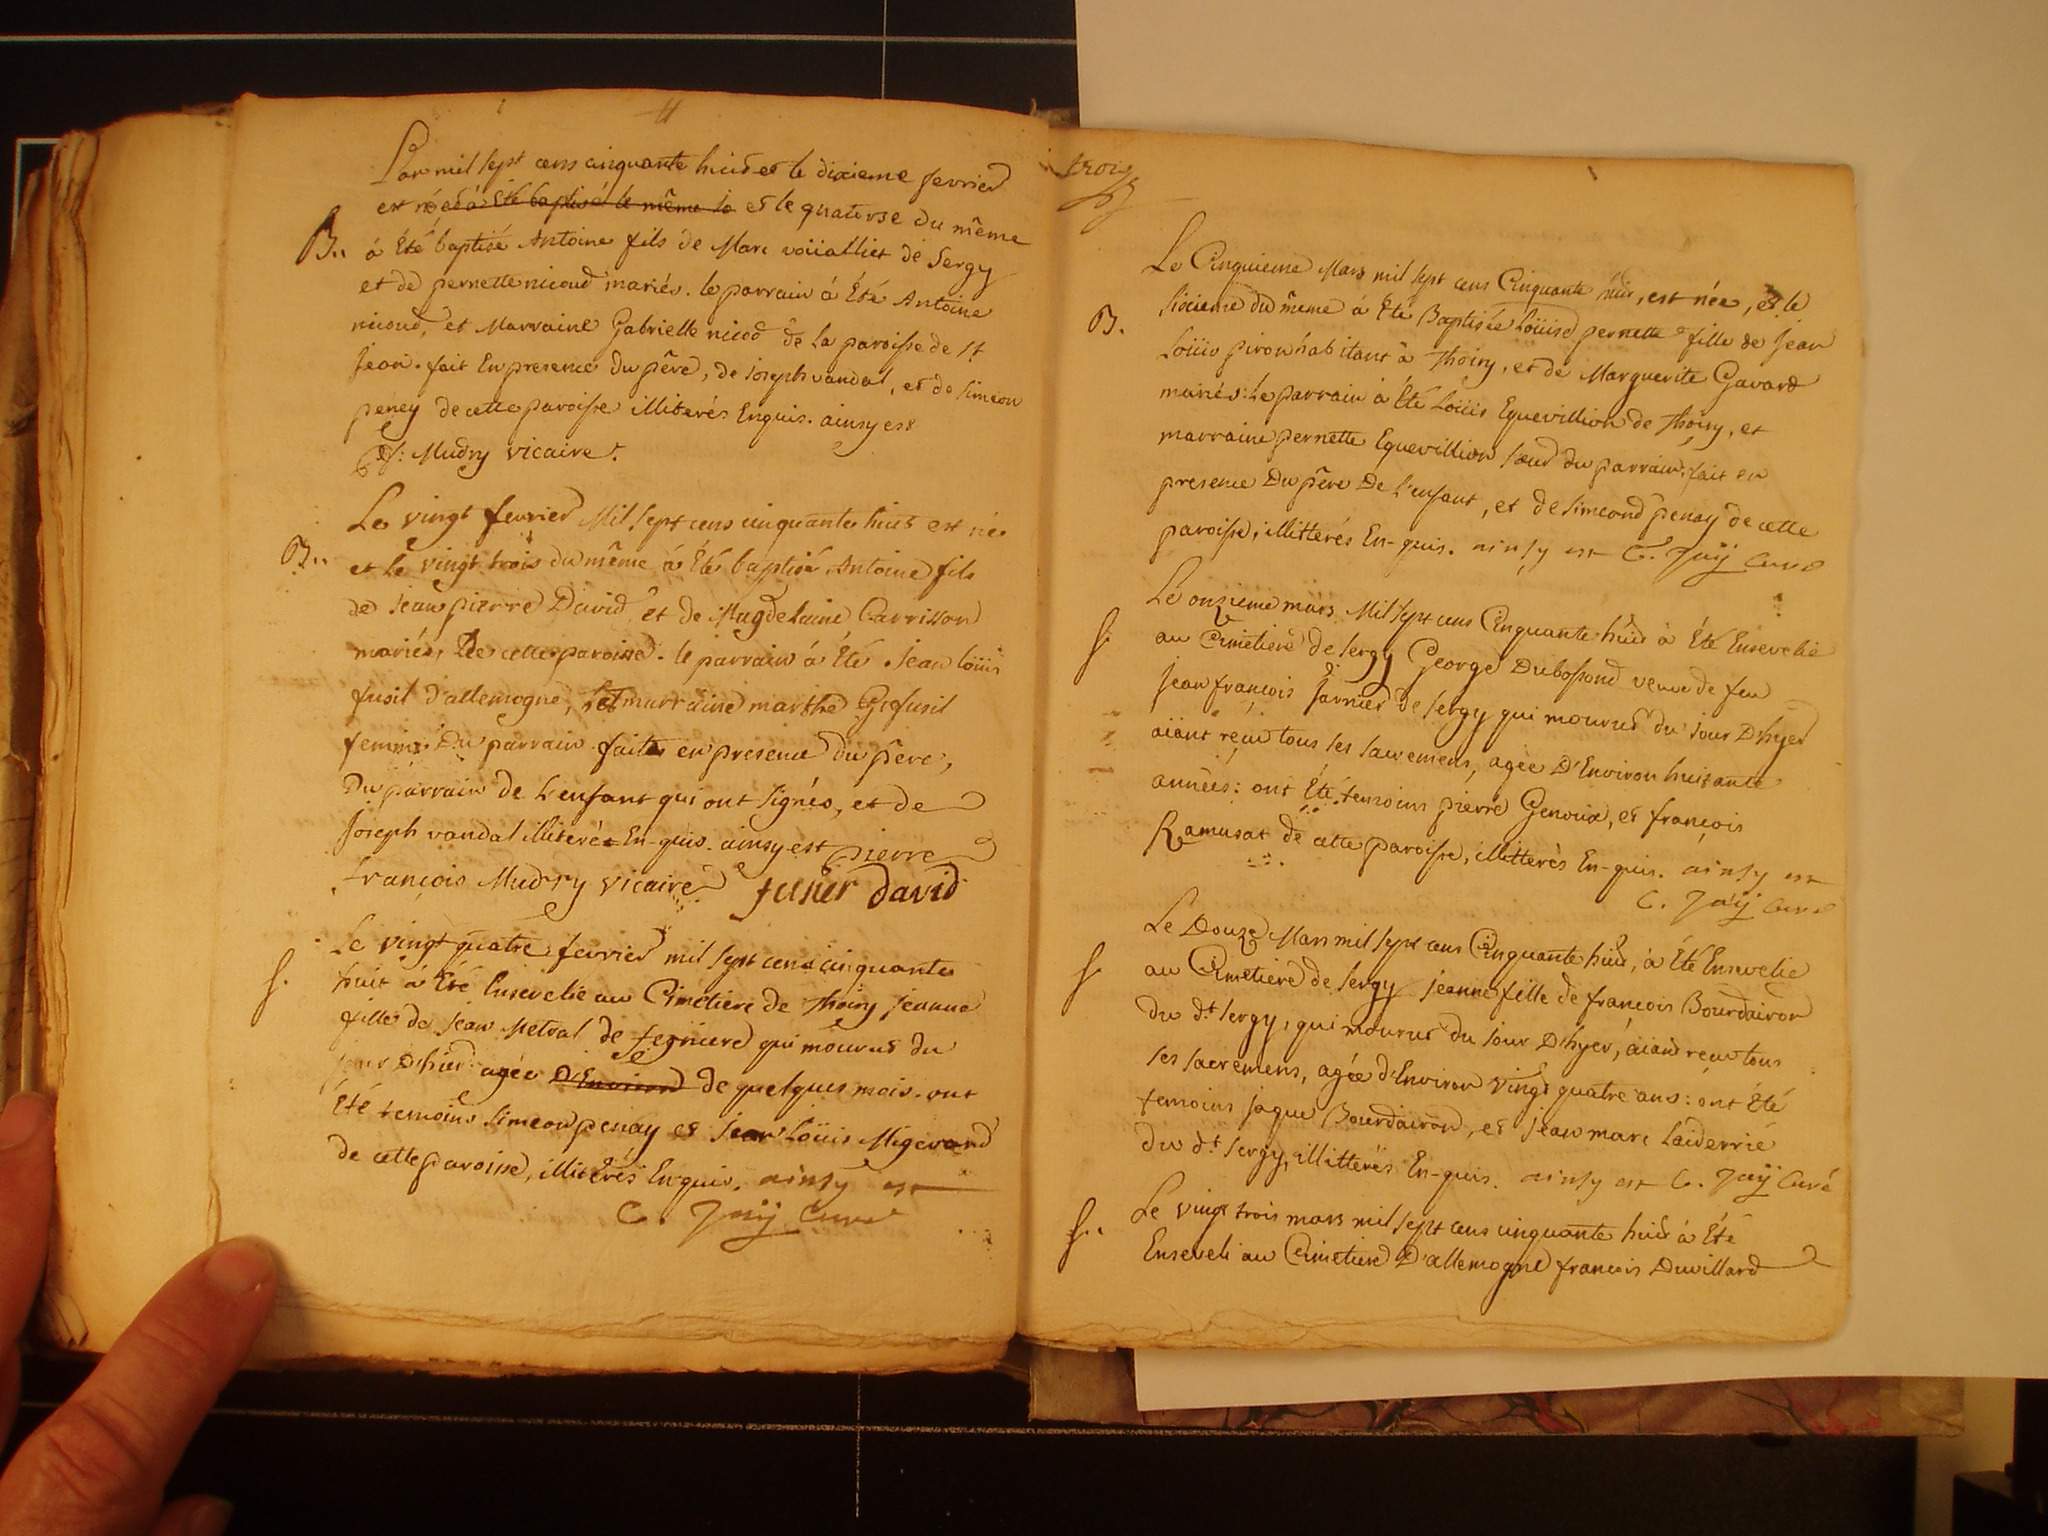 L'an mil sept cens cinquante huit et le dixieme fevrier
est né et à été baptisé le même jo et le quatorse du même
B.. à Été baptisé Antoine fils de Marc voüalliet de Sergy
et de pernette nicoud mariés. le parrain à Été Antoine
nicoud, et Marraine Gabrielle nicod de la paroisse de St
Jean. fait En presence du père, de joseph vandal, et de simeon
peney de cette paroisse illiterés Enquis. ainsy est
Mudry vicaire.
Le vingt fevrier Mil sept cens cinquante huit est né
B.. et le vingt trois du même à Été baptisé Antoine fils
de Jean pierre David et de Magdelaine Carrisson
mariés, De cette paroisse. le parrain à Été Jean loüis
fusil d'allemogne, et marraine marthe fusil
femme Du parrain faite en presence du père,
Du parrain de L'enfant qui ont signés, et de
Joseph vandal illiteré En-quis. ainsy est pierre
françois Mudry vicaire david
Le vingt quatre fevrier mil sept cens cinquante
S. huit à Été Ensevelie au Cimetiere de Thoiry jeanne
fille de Jean Metral de fegniere qui mourut du
jour D'hier agée D'Environ de quelques mois. ont
Été temoins simeon penay et jean Loüis Migerand
de cette paroisse, illiterés Enquis. ainsy est
C. Jaÿ Curé
trois
Le Cinquieme Mars mil sept cens Cinquante huit, est née, et le
sixieme du même à Été Baptisée Loüise pernette fille de Jean
B. Loüis piron habitant à Thoiry, et de Marguerite Gavard
mariés: Le parrain à Été Loüis Equevillion de Thoiry, et
marraine pernette Equevillion sœur du parrain, fait en
presence Du père De l'enfant, et de simeond penay de cette
paroisse, illittérés En-quis. ainsy est C. Jaÿ Curé
Le onzieme mars Mil sept cens Cinquante huit à Été Ensevelie
S. au Cimetiere de sergy George Dubossond veuve de feu
Jean françois Jarnier de sergy qui mourut du jour D'hyer
aiant reçu tous ses sacremens, agée D'Environ huitante
années: ont Été temoins pierre Genoux, et françois
Ramusat de cette paroisse, illitterés En-quis. ainsy est
C. Jaÿ Curé
Le Douze Mars mil sept cens Cinquante huit, à Été Ensevelie
S. au Cimetiere de Sergy jeanne fille de françois Bourdairon
du dt. sergy, qui mourut du jour D'hyer, aiant reçu tous
ses sacremens, agée d'Environ vingt quatre ans: ont Été
temoins jaque Bourdairon, et jean marc Laiderrié
du dt. sergy, illitterés En-quis. ainsy est C. Jaÿ Curé
S.. Le vingt trois mars mil sept cens cinquante huit à Été
Enseveli au Cimetiere D'allemogne françois Duvillard